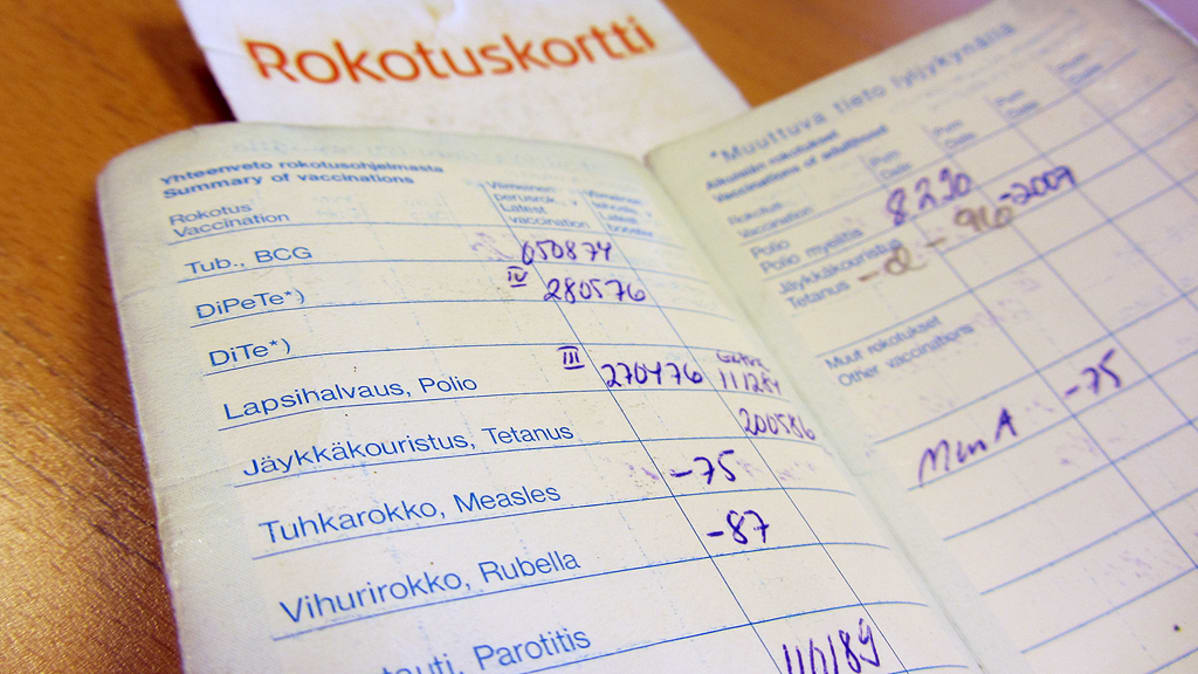 Rokotuskortti
Yhteenveto rokotusohjelmasta
Summary of vaccinations
Rokotus
Vaccination
Viimeinen
perusrok., v
Latest
vaccination
Viimeinen
Latest
booster
Tub., BCG 050874
DiPeTe*) IV 280576
DiTe*)
Lapsihalvaus, Polio III 270476 111284
Jäykkäkouristus, Tetanus 200586
Tuhkarokko, Measles -75
Vihurirokko, Rubella -87
tauti, Parotitis
*Muuttuva tieto lyijykynällä
Aikuisiän rokotukset
Vaccinations of adulthood
Rokotus
Vaccination
Pvm
Date
Pvm
Date
Pvm
Date
Pvm
Date
Polio
Polio myelitis
Jäykkäkouristus
Tetanus
-2009
Muut rokotukset
Other vaccinations
Men A -75